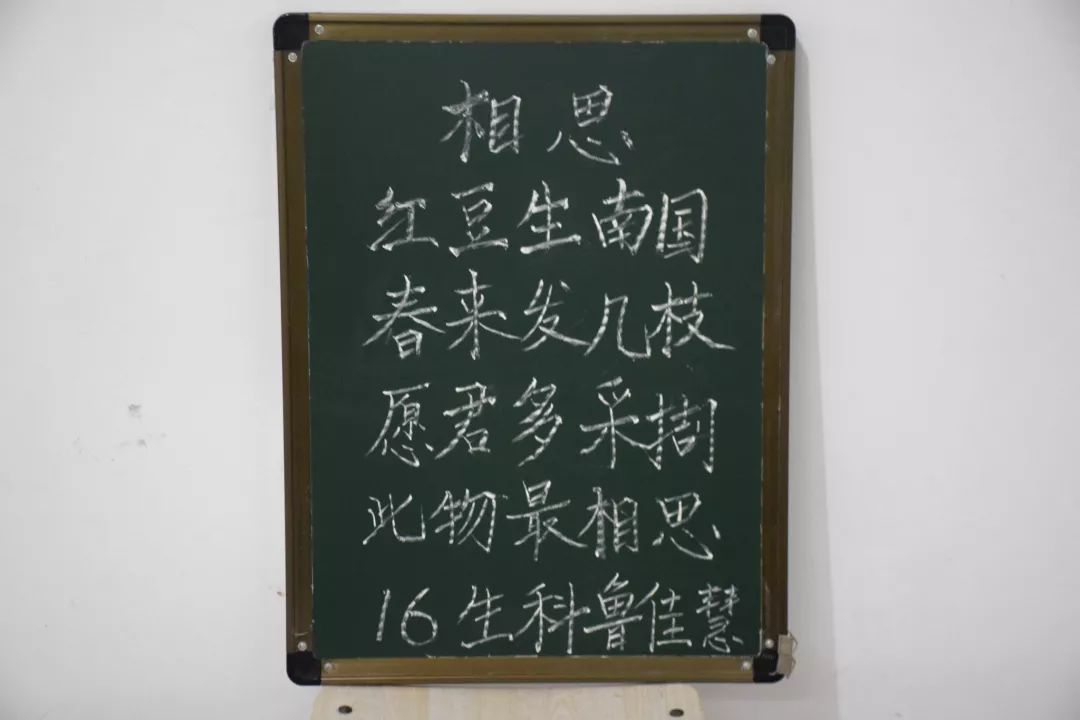 相思
红豆生南国
春来发几枝
愿君多采撷
此物最相思
16生科鲁佳慧